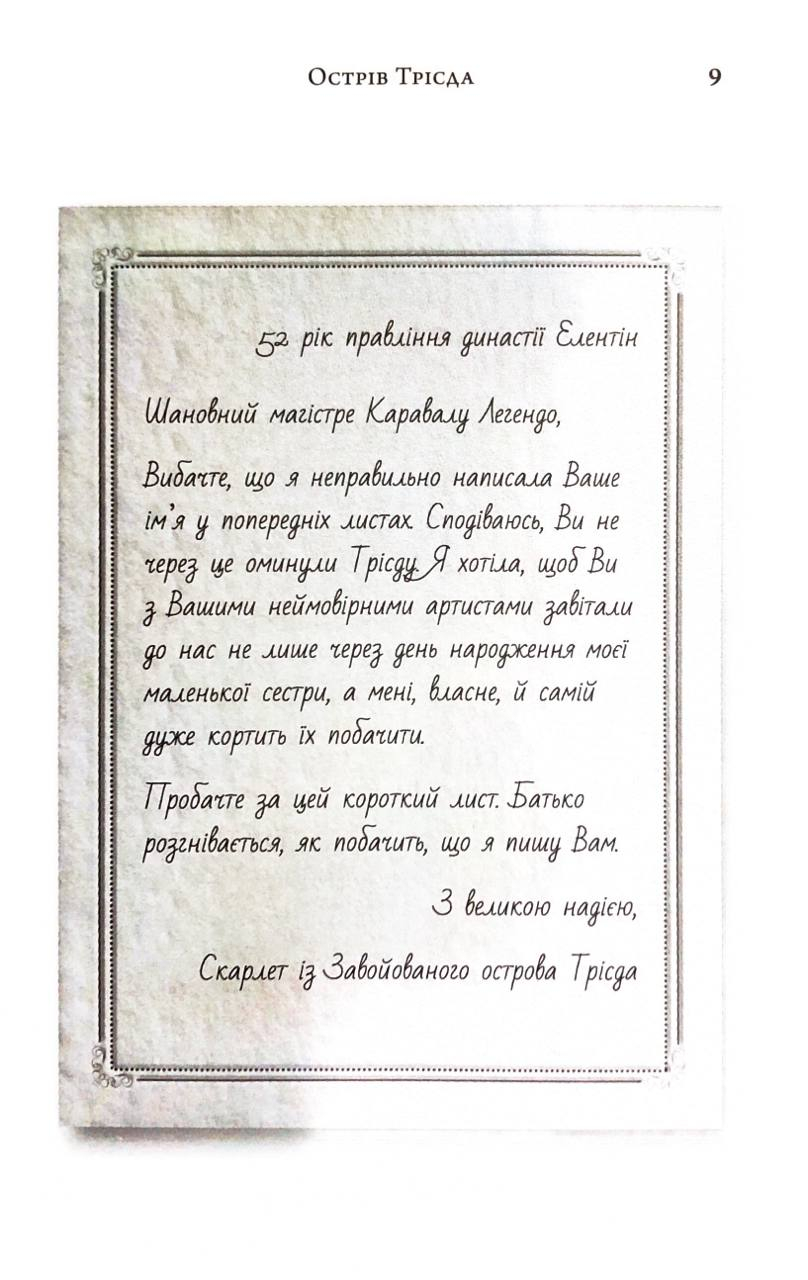 Острів Трісда
9
52 рік правління династії Елентін
Шановний магістре Каравалу Легендо,
Вибачте, що я неправильно написала Ваше
ім’я у попередніх листах. Сподіваюсь, Ви не
через це оминули Трісду. Я хотіла, щоб Ви
з Вашими неймовірними артистами завітали
до нас не лише через день народження моєї
маленької сестри, а мені, власне, й самій
дуже кортить їх побачити.
Пробачте за цей короткий лист. Батько
розгнівається, як побачить, що я пишу Вам.
З великою надією,
Скарлет із Завойованого острова Трісда